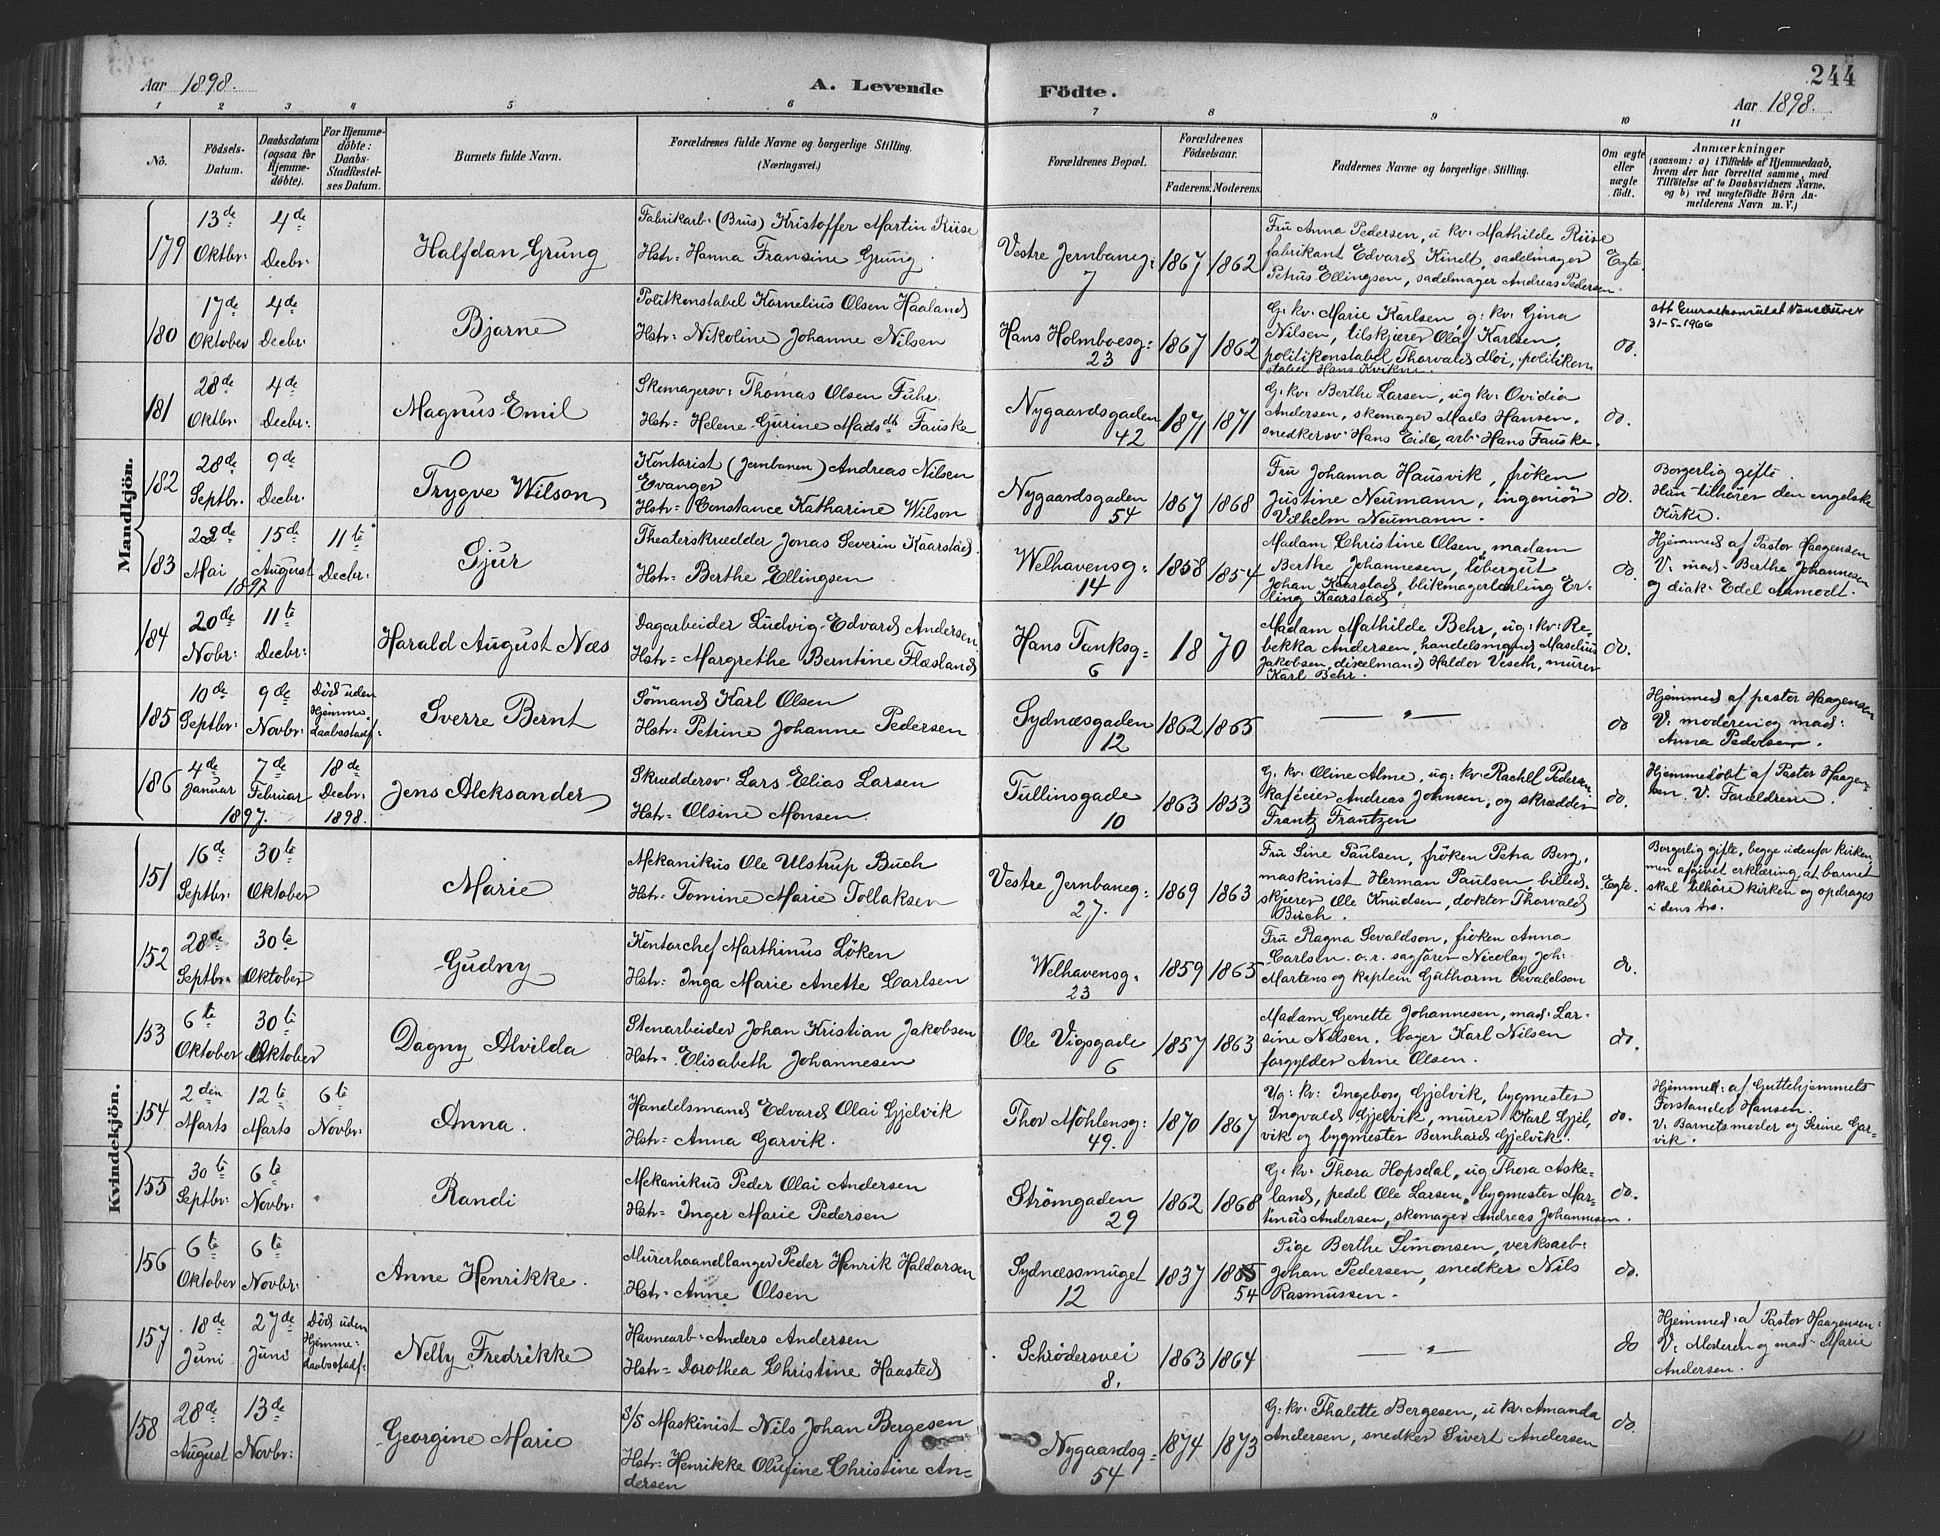 Aar 1898.
A. Levende Födte.
244
Aar 1898.
1 2 3 4 5 6 7 8 9 10 11
No.
Födsels-
Datum.
Daabsdatum
(ogsaa for
Hjemme-
döbte).
For Hjemme-
döbte:
Daabs-
Stadfæstel-
ses Datum.
Barnets fulde Navn.
Forældrenes fulde Navne og borgerlige Stilling.
(Næringsvei.)
Forældrenes Bopæl.
Forældrenes
Födselsaar.
Faderens. Moderens.
Faddernes Navne og borgerlige Stilling.
Om ægte
eller
uægte
födt.
Anmærkninger
(saasom: a) i Tilfælde af Hjemmedaab,
hvem der har forrettet samme, med
Tilföielse af to Daabsvidners Navne,
og b) ved uægtefödte Börn An-
melderens Navn m. V.)
Mandkjön.
179
13de
Oktbr:
4de
Decbr:
Halfdan Grung
Fabrikarb: (Brus) Kristoffer Martin Riise
Hstr: Hanna Fransine Grung.
Vestre Jernbaneg:
7
1867 1862
Fru Anna Pedersen, u kv: Mathilde Riise
fabrikant Edvard Kindt, sadelmager
Petrus Ellingsen, sadelmager Andreas Pedersen.
Egte.
180
17de
Oktober
4de
Decbr:
Bjarne
Politkonstabel Kornelius Olsen Haaland
Hstr: Nikoline Johanne Nilsen
Hans Holmboesg:
23
1867 1862
G: kv: Marie Karlsen g: kv: Gina
Nilsen, tilskjærer Olaf Karlsen,
politikonstabel Thorvald Moi, politikon
stabel Hans Kvikne.
do.
att Generalkonsulat Vancouver
31-5-1966
181
28de
Oktbr:
4de
Decbr:
Magnus Emil
Skomagersv: Thomas Olsen Fuhr
Hstr: Helene Gurine Madsdtr Fauske
Nygaardsgaden
42
1871 1871
G: kv: Berthe Larsen, ug kv: Ovidia
Andersen, skomager Mads Hansen,
snedkersv: Hans Eide, arb: Hans Fauske.
do.
182
28de
Septbr:
9de
Decbr:
Trygve Wilson
Kontorist (Jernbanen) Andreas Nilsen
Evanger
Hstr: Constance Katharine Wilson
Nygaardsgaden
54
1867 1868
Fru Johanna Hausvik, fröken
Justine Neumann, ingeniör
Vilhelm Neumann.
do.
Borgerlig gifte.
Hun tilhører den engelske
Kirke.
183
23de
Mai
15de
August
1897
11te
Decbr:
Gjur
Theaterskrædder Jonas Severin Kaarstad.
Hstr: Berthe Ellingsen
Welhavensg:
14
1858 1854
Madam Christine Olsen, madam
Berthe Johannesen, löbergut
Johan Kaarstad, blikmagerlærling Er-
ling Kaarstad
do.
Hjemmed af Pastor Haagensen
V: mad: Berthe Johannesen
og diak: Edel Aamodt.
184
20de
Nobr:
11te
Decbr:
Harald August Næs
Dagarbeider Ludvig Edvard Andersen
Hstr: Margrethe Berntine Flæsland
Hans Tanksg:
6
1870
Madam Mathilde Behr, ug: kv: Re-
bekka Andersen, handelsmand Maselius
Jakobsen, dixelmand Haldor Veseth, murer
Karl Behr.
do.
185
10de
Septbr:
9de
Novbr:
Död uden
Hjemme-
daabsstadf:
Sverre Bernt
Sömand Karl Olsen
Hstr: Petrine Johanne Pedersen
Sydnæsgaden
12
1862 1865
— „ —
do
Hjemmed af pastor Haagensen
V: moderen og mad:
Anna Pedersen.
186
4de
Januar
7de
Februar
1897.
18de
Decbr:
1898.
Jens Aleksander
Skræddersv: Lars Elias Larsen
Hstr: Olsine Monsen.
Tullinsgade
10
1863 1853
G: kv: Oline Alme, ug: kv: Rachel Pedersen
kaféeier Andreas Johnsen, og skrædder
Frantz Frantzen
do.
Hjemmedöbt af Pastor Haagen-
sen. V. Forældrene.
Kvindekjön.
151
16de
Septbr:
30te
Oktober
Marie
Mekanikus Ole Ulstrup Buch
Hstr: Tomine Marie Tollaksen
Vestre Jernbaneg:
27.
1869 1863
Fru Sine Paulsen, fröken Petra Berg,
maskinist Herman Paulsen, billed-
skjærer Ole Knudsen, doktor Thorvald
Buch.
Egte.
Borgerlig gifte, begge udenfor kirken,
men afgivet erklæring at barnet
skal tilhöre kirken og opdrages
i dens tro.
152
28de
Septbr:
30te
Oktober
Gudny
Kontorchef Marthinus Löken
Hstr: Inga Marie Anette Carlsen
Welhavensg:
23
1859 1865
Fru Ragna Sevaldson, fröken Anna
Carlsen. o.r. sagförer Nicolay Joh:
Martens og kaptein Guthorm Sevaldson
do.
153
6te
Oktober
30te
Oktober
Dagny Alvilda
Stenarbeider Johan Kristian Jakobsen
Hstr: Elisabeth Johannesen
Ole Vigsgade
6
1857 1863
Madam Genette Johannesen, mad: Lar-
sine Nilsen, bager Karl Nilsen
forgylder Arne Olsen.
do.
154
2den
Marts
12te
Marts
6te
Novbr:
Anna.
Handelsmand Edvard Olai Gjelvik
Hstr: Anna Garvik.
Thor Möhlensg:
49.
1870 1867
Ug: kv: Ingeborg Gjelvik, bygmester
Ingvald Gjelvik, murer Karl Gjel-
vik og bygmester Bernhard Gjelvik.
do.
Hjemmed: af Guttehjemmets
Forstander Hansen.
V: Barnets moder og Serine Gar-
vik.
155
30te
Septbr:
6te
Novbr:
Randi
Mekanikus Peder Olai Andersen
Hstr: Inger Marie Pedersen
Strömgaden
29
1862 1868
G: kv: Thora Hopsdal, ug Thora Aske-
land, pedel Ole Larsen, bygmester Mar-
tinus Andersen, skomager Andreas Johannesen.
do.
156
6te
Oktober
6te
Novbr:
Anne Henrikke.
Murerhaandlanger Peder Henrik Haldorsen
Hstr: Anne Olsen
Sydnæssmuget
12
1837 1865
54
Pige Berthe Simonsen, verksarb:
Johan Pedersen, snedker Nils
Rasmussen.
do.
157
18de
Juni
27de
Juni
Död uden
Hjemme-
daabsstadf:
Nelly Fredrikke
Havnearb: Anders Andersen
Hstr: Dorothea Christine Haasted
Schrödersvei
8.
1863 1864
— „ —
do
Hjemmed: a/ Pastor Haagensen:
V: Moderen og mad: Marie
Andersen.
158
28de
August
13de
Novbr:
Georgine Marie
S/S Maskinist Nils Johan Bergesen
Hstr: Henrikke Olufine Christine An-
dersen
Nygaardsg:
54
1874 1873
G: kv: Thalette Bergesen, u kv: Amanda
Andersen, snedker Sivert Andersen
do.